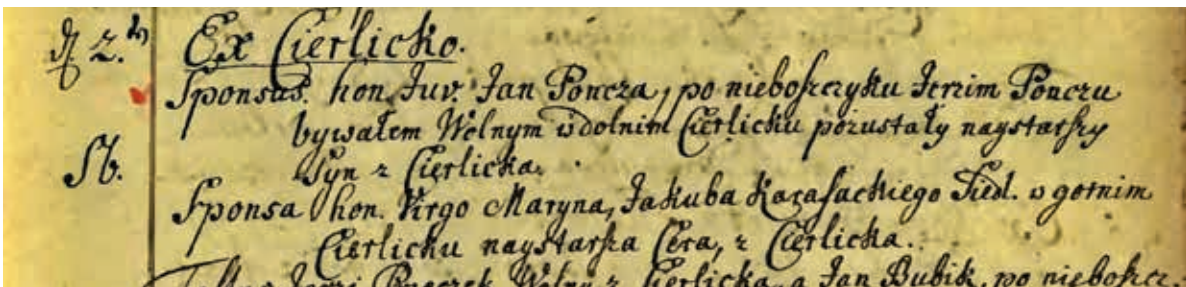 2. Ex Cierlicko.
Sponsus. hon. Juv. Jan Poncza, po nieboszczyku Jerzim Ponczu
bywałem Wolnym w dolnim Cierlicku pozustały naystarszy
Sb. Syn z Cierlicka.
Sponsa hon. Virgo Maryna, Jakuba Kazasackiego Siedl. w gornim
Cierlicku naystarsza Cera, z Cierlicka.
Jerzi Wolny z Cierlicka, a Jan Bubik, po nieboszcz.